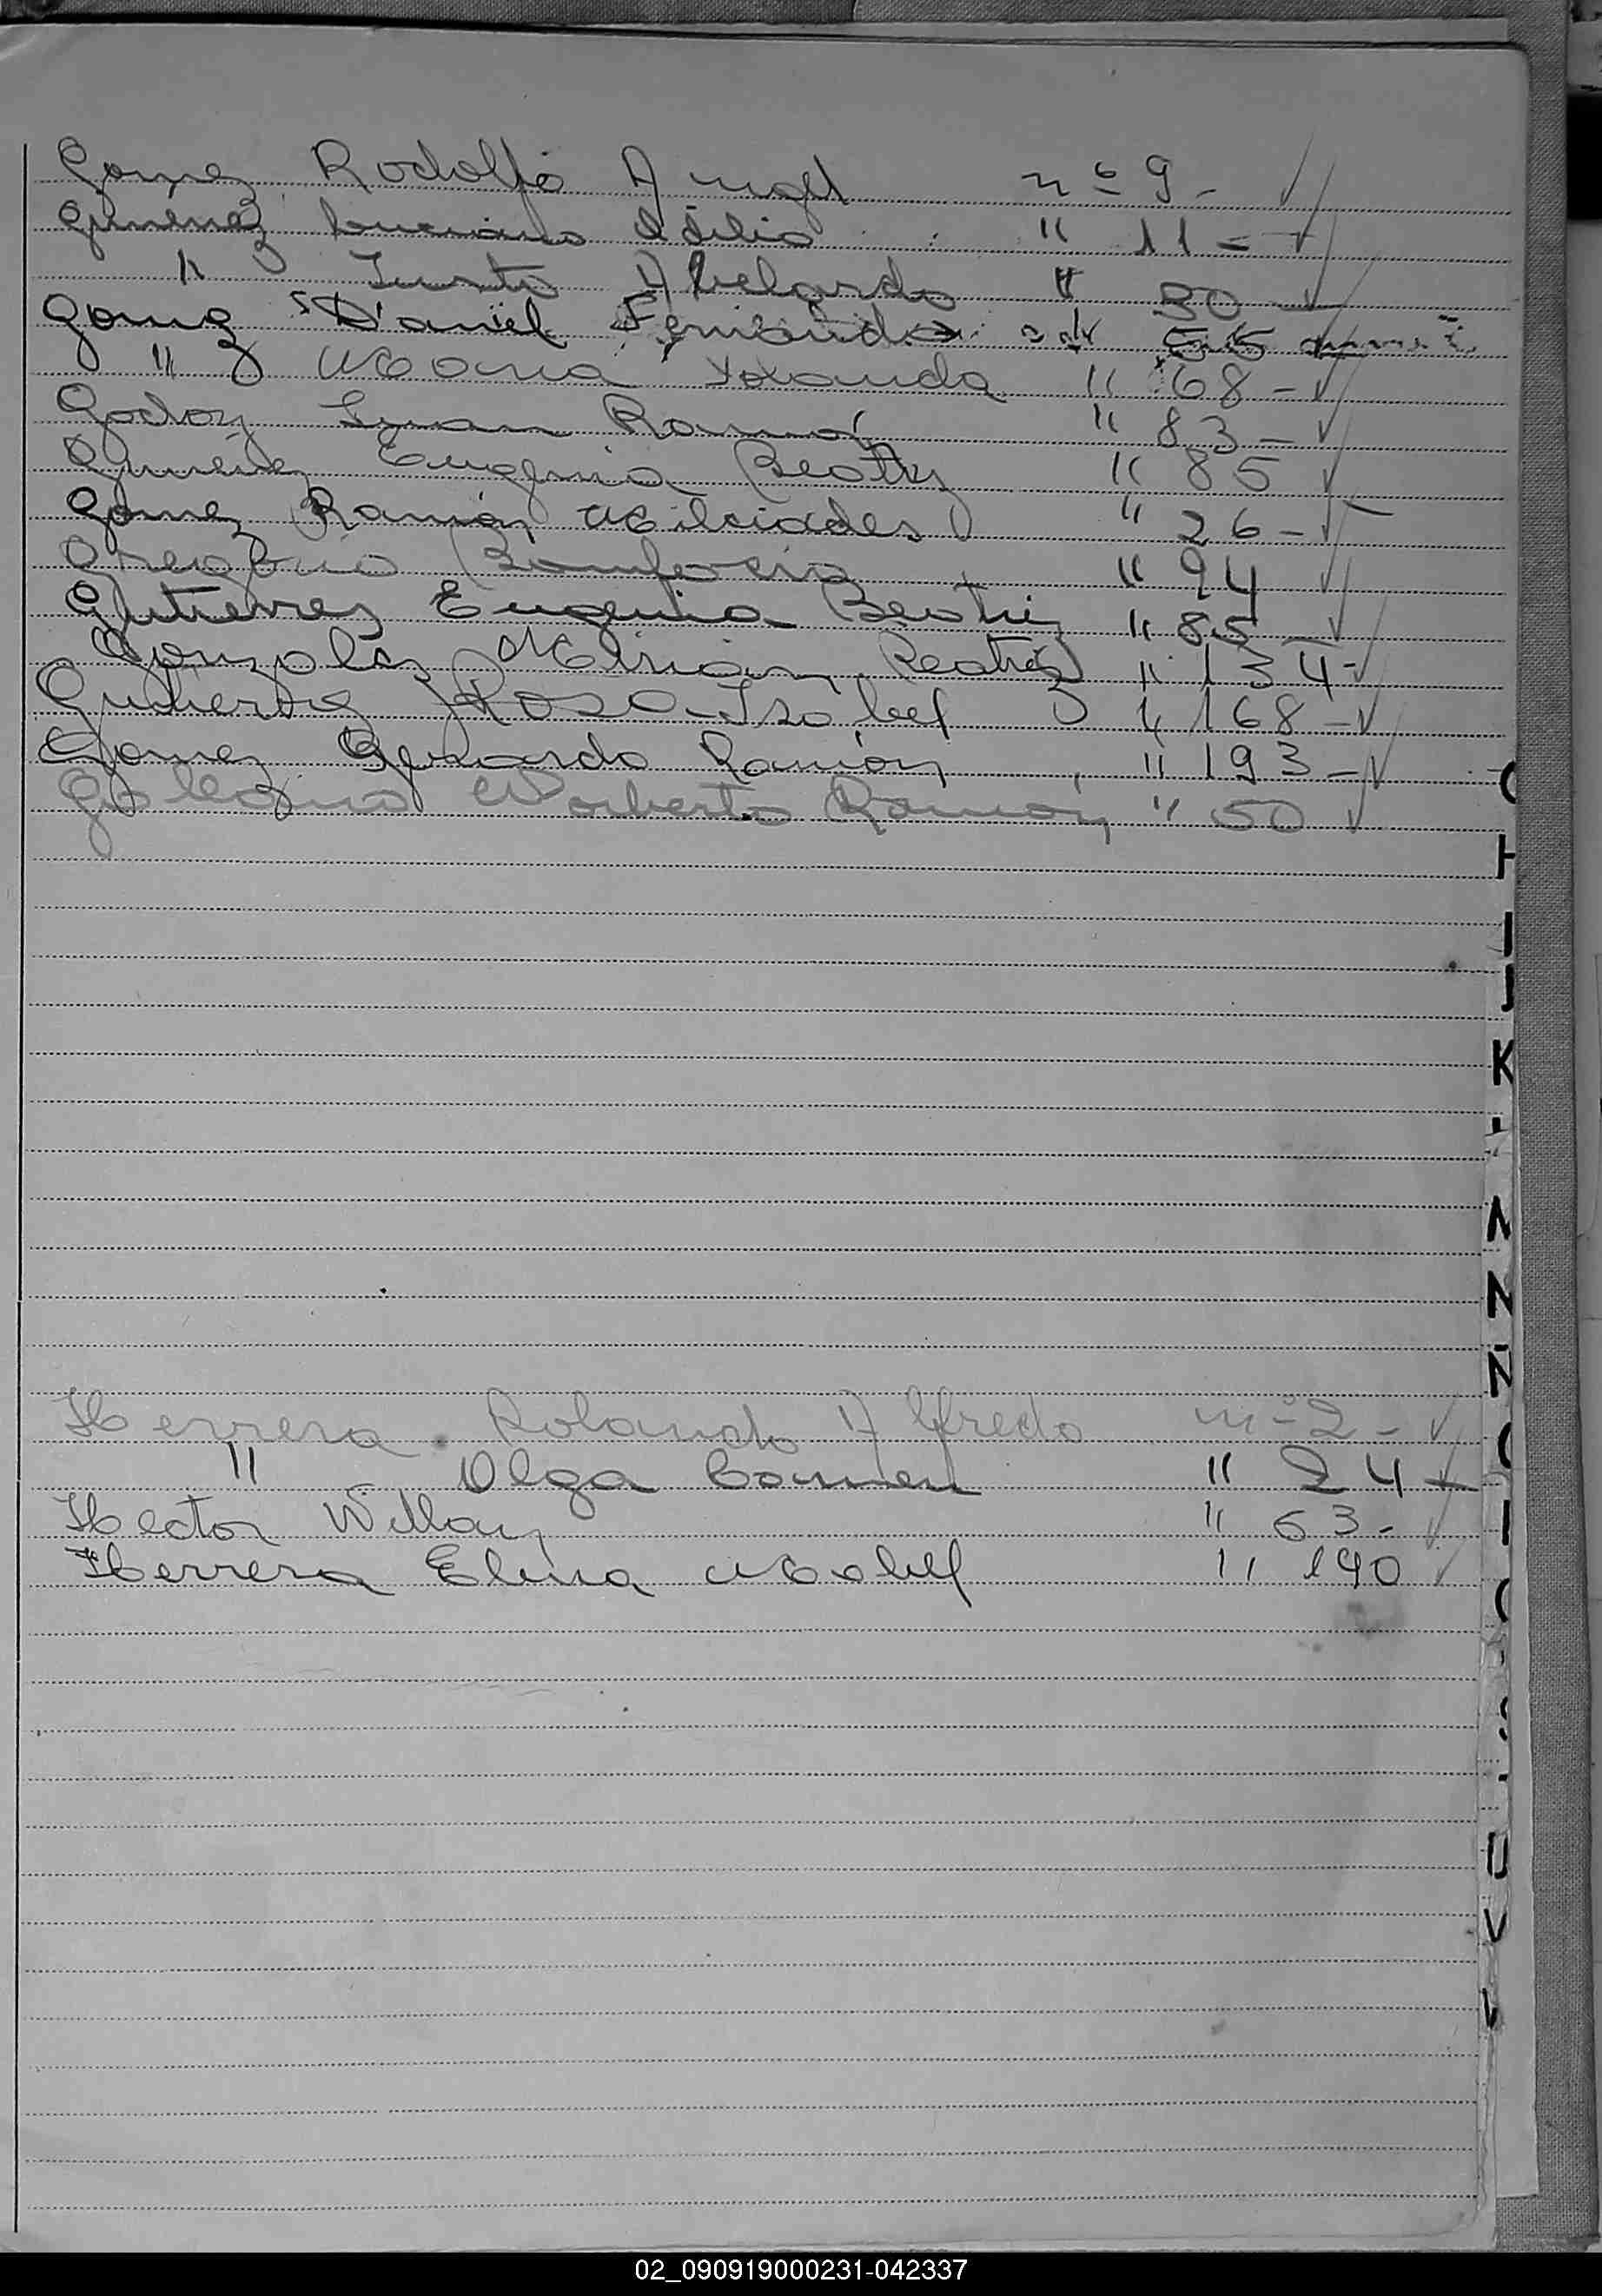 Gomez Rodolfo Angel nº 9-
Gimenez Luciano Idilio " 11-
" Justo Abelardo " 30
Gomez Daniel Fernando 55
" Maria Yolanda " 68-
Godoy Juan Ramón " 83-
Gimenez Eugenia Beatriz " 85
Gomez Ramón Milciades " 26-
Gregorio Bonifacia " 94
Gutierrez Eugenia Beatriz " 85
Gonzalez Mirian Beatriz " 134-
Gutierrez Rosa Isabel " 168-
Gomez Gerardo Ramón " 193-
Norberto Ramón " 50
Herrera Rolando Alfredo nº 2-
" Olga Carmen " 24
Hector William " 63-
Herrera Elena Mabel " 190
G
H
I
J
K
L
M
N
Ñ
O
U
V
02_090919000231-042337